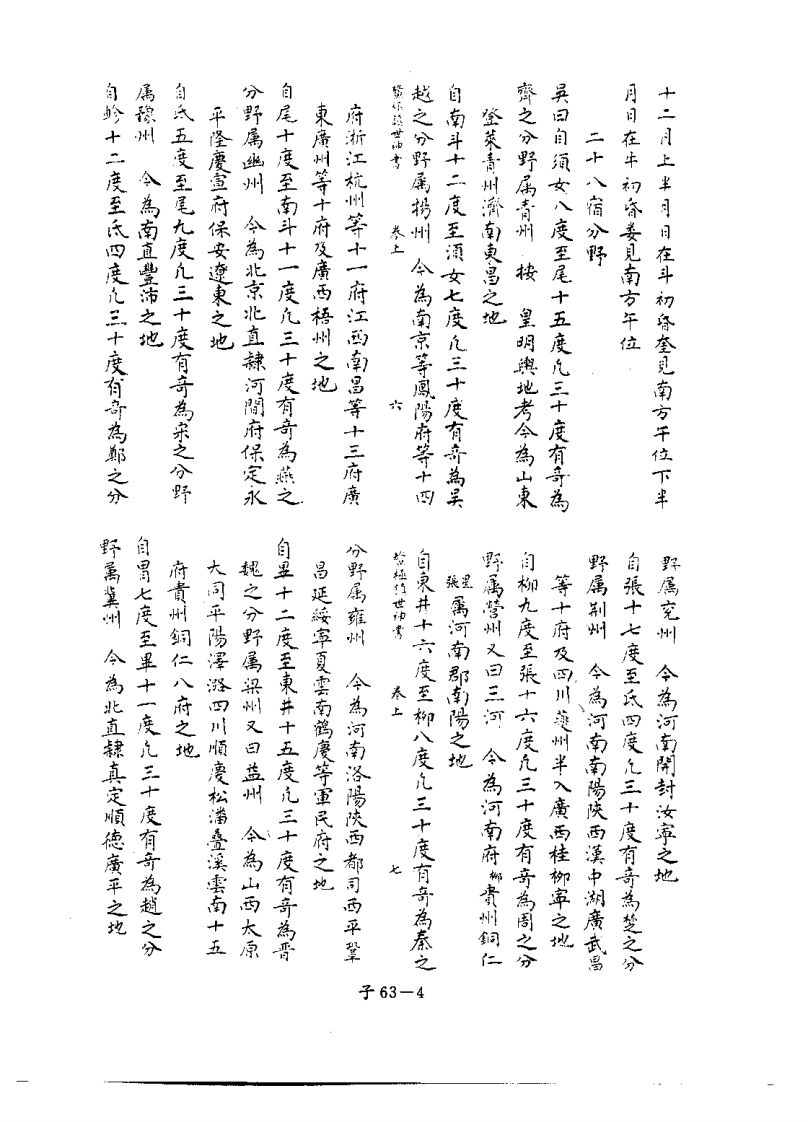 十二月上半月日在斗初昏奎見南方午位下半
月日在牛初昏婁見南方午位
二十八宿分野
吳曰自須女八度至尾十五度凢三十度有奇為
齊之分野属青州 按 皇明輿地考今為山東
登萊青州濟南東昌之地
自南斗十二度至須女七度凢三十度有奇為吳
越之分野属揚州 今為南京等鳳陽府等十四
世神書 卷上 六
府浙江杭州等十一府江西南昌等十三府廣
東廣州等十府及廣西梧州之地
自尾十度至南斗十一度凢三十度有奇為燕之
分野属幽州 今為北京北直隸河間府保定永
平隆慶宣府保安遼東之地
自氐五度至尾九度凢三十度有奇為宋之分野
属豫州 今為南直豐沛之地
自軫十二度至氐四度凢三十度有奇為鄭之分
野属兖州 今為河南開封汝寧之地
自張十七度至氐四度凢三十度有奇為楚之分
野属荆州 今為河南南陽陝西漢中湖廣武昌
等十府及四川夔州半入廣西桂柳寧之地
自柳九度至張十六度凢三十度有奇為周之分
野属營州又曰三河 今為河南府柳貴州銅仁
星張属河南郡南陽之地
自東井十六度至柳八度凢三十度有奇為秦之
世神書 卷上 七
分野属雍州 今為河南洛陽陝西都司西平鞏
昌延綏寧夏雲南鶴慶等軍民府之地
自畢十二度至東井十五度凢三十度有奇為晋
魏之分野属梁州又曰益州 今為山西太原
大同平陽澤潞四川順慶松潘疊溪雲南十五
府貴州銅仁八府之地
自胃七度至畢十一度凢三十度有奇為趙之分
野属冀州 今為北直隸真定順德廣平之地
子63—4